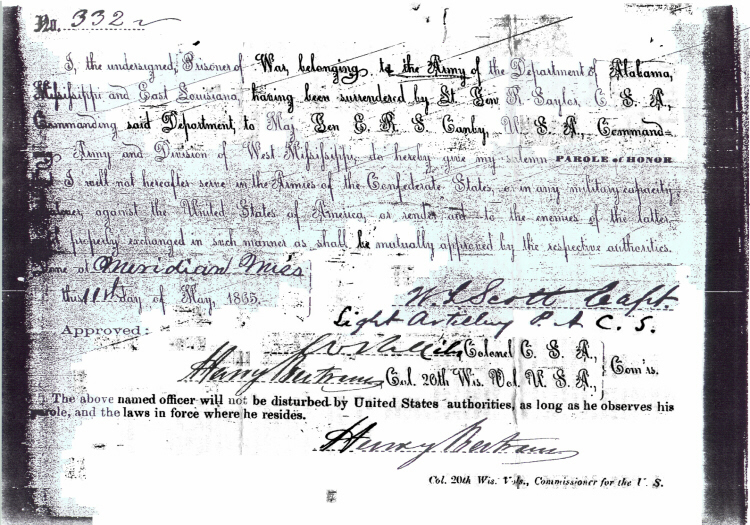 No. 332
I, the undersigned, Prisoner of War, belonging to the Army of the Department of Alabama,
Mississippi and East Louisiana, having been surrendered by Lt. Gen R. Taylor, C. S. A.,
Commanding said Department, to Maj. Gen E. R. S. Canby, U. S. A., Command-
Army and Division of West Mississippi, do hereby give my solemn PAROLE of HONOR
I will not hereafter serve in the Armies of the Confederate States, or in any military capacity
against the United States of America, or render aid to the enemies of the latter,
properly exchanged in such manner as shall be mutually approved by the respective authorities.
Done at Meridian Miss
this 11th day of May, 1865.
W L Scott Capt.
Light Artillery P. A. C. S.
Approved:
Colonel C. S. A.,
Henry Bertram Col. 20th Wis. Vol. U. S. A., Com'rs.
The above named officer will not be disturbed by United States authorities, as long as he observes his
parole, and the laws in force where he resides.
Henry Bertram
Col. 20th Wis. Vols., Commissioner for the U. S.